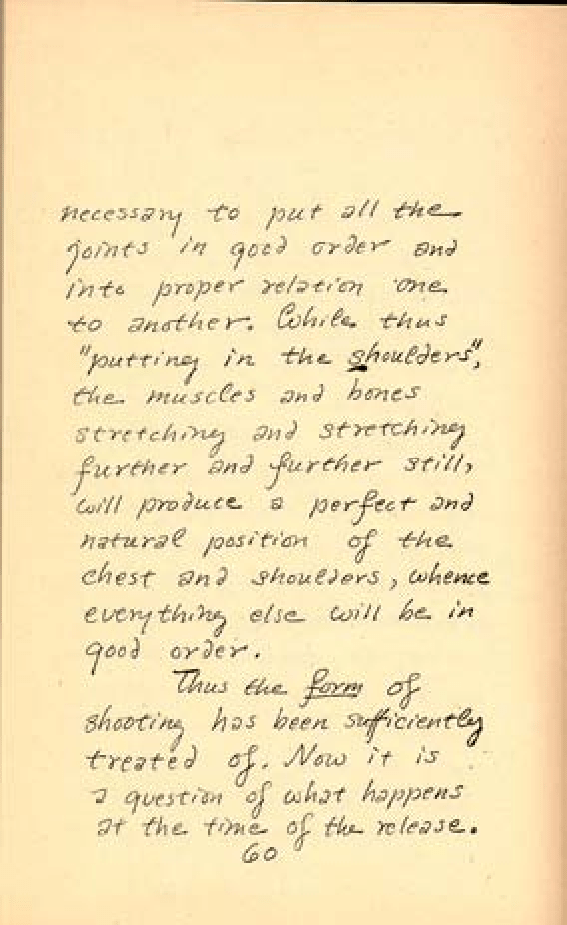 necessary to put all the
joints in good order and
into proper relation one
to another. While thus
"putting in the shoulders",
the muscles and bones
stretching and stretching
further and further still,
will produce a perfect and
natural position of the
chest and shoulders, whence
everything else will be in
good order.
Thus the form of
shooting has been sufficiently
treated of. Now it is
a question of what happens
at the time of the release.
60